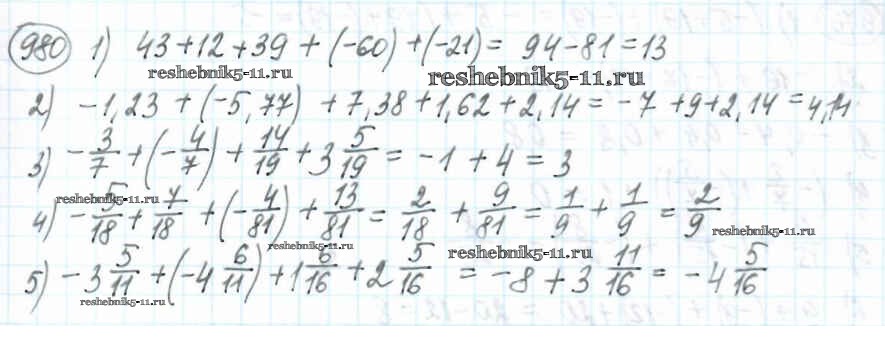 980 1) 43 + 12 + 39 + (-60) + (-21) = 94 - 81 = 13
reshebnik5-11.ru reshebnik5-11.ru
2) -1,23 + (-5,77) + 7,38 + 1,62 + 2,14 = -7 + 9 + 2,14 = 4,14
3) -3/7 + (-4/7) + 14/19 + 3 5/19 = -1 + 4 = 3
reshebnik5-11.ru
4) -5/18 + 7/18 + (-4/81) + 13/81 = 2/18 + 9/81 = 1/9 + 1/9 = 2/9
reshebnik5-11.ru
reshebnik5-11.ru reshebnik5-11.ru
5) -3 5/11 + (-4 6/11) + 1 6/16 + 2 5/16 = -8 + 3 11/16 = -4 5/16
reshebnik5-11.ru